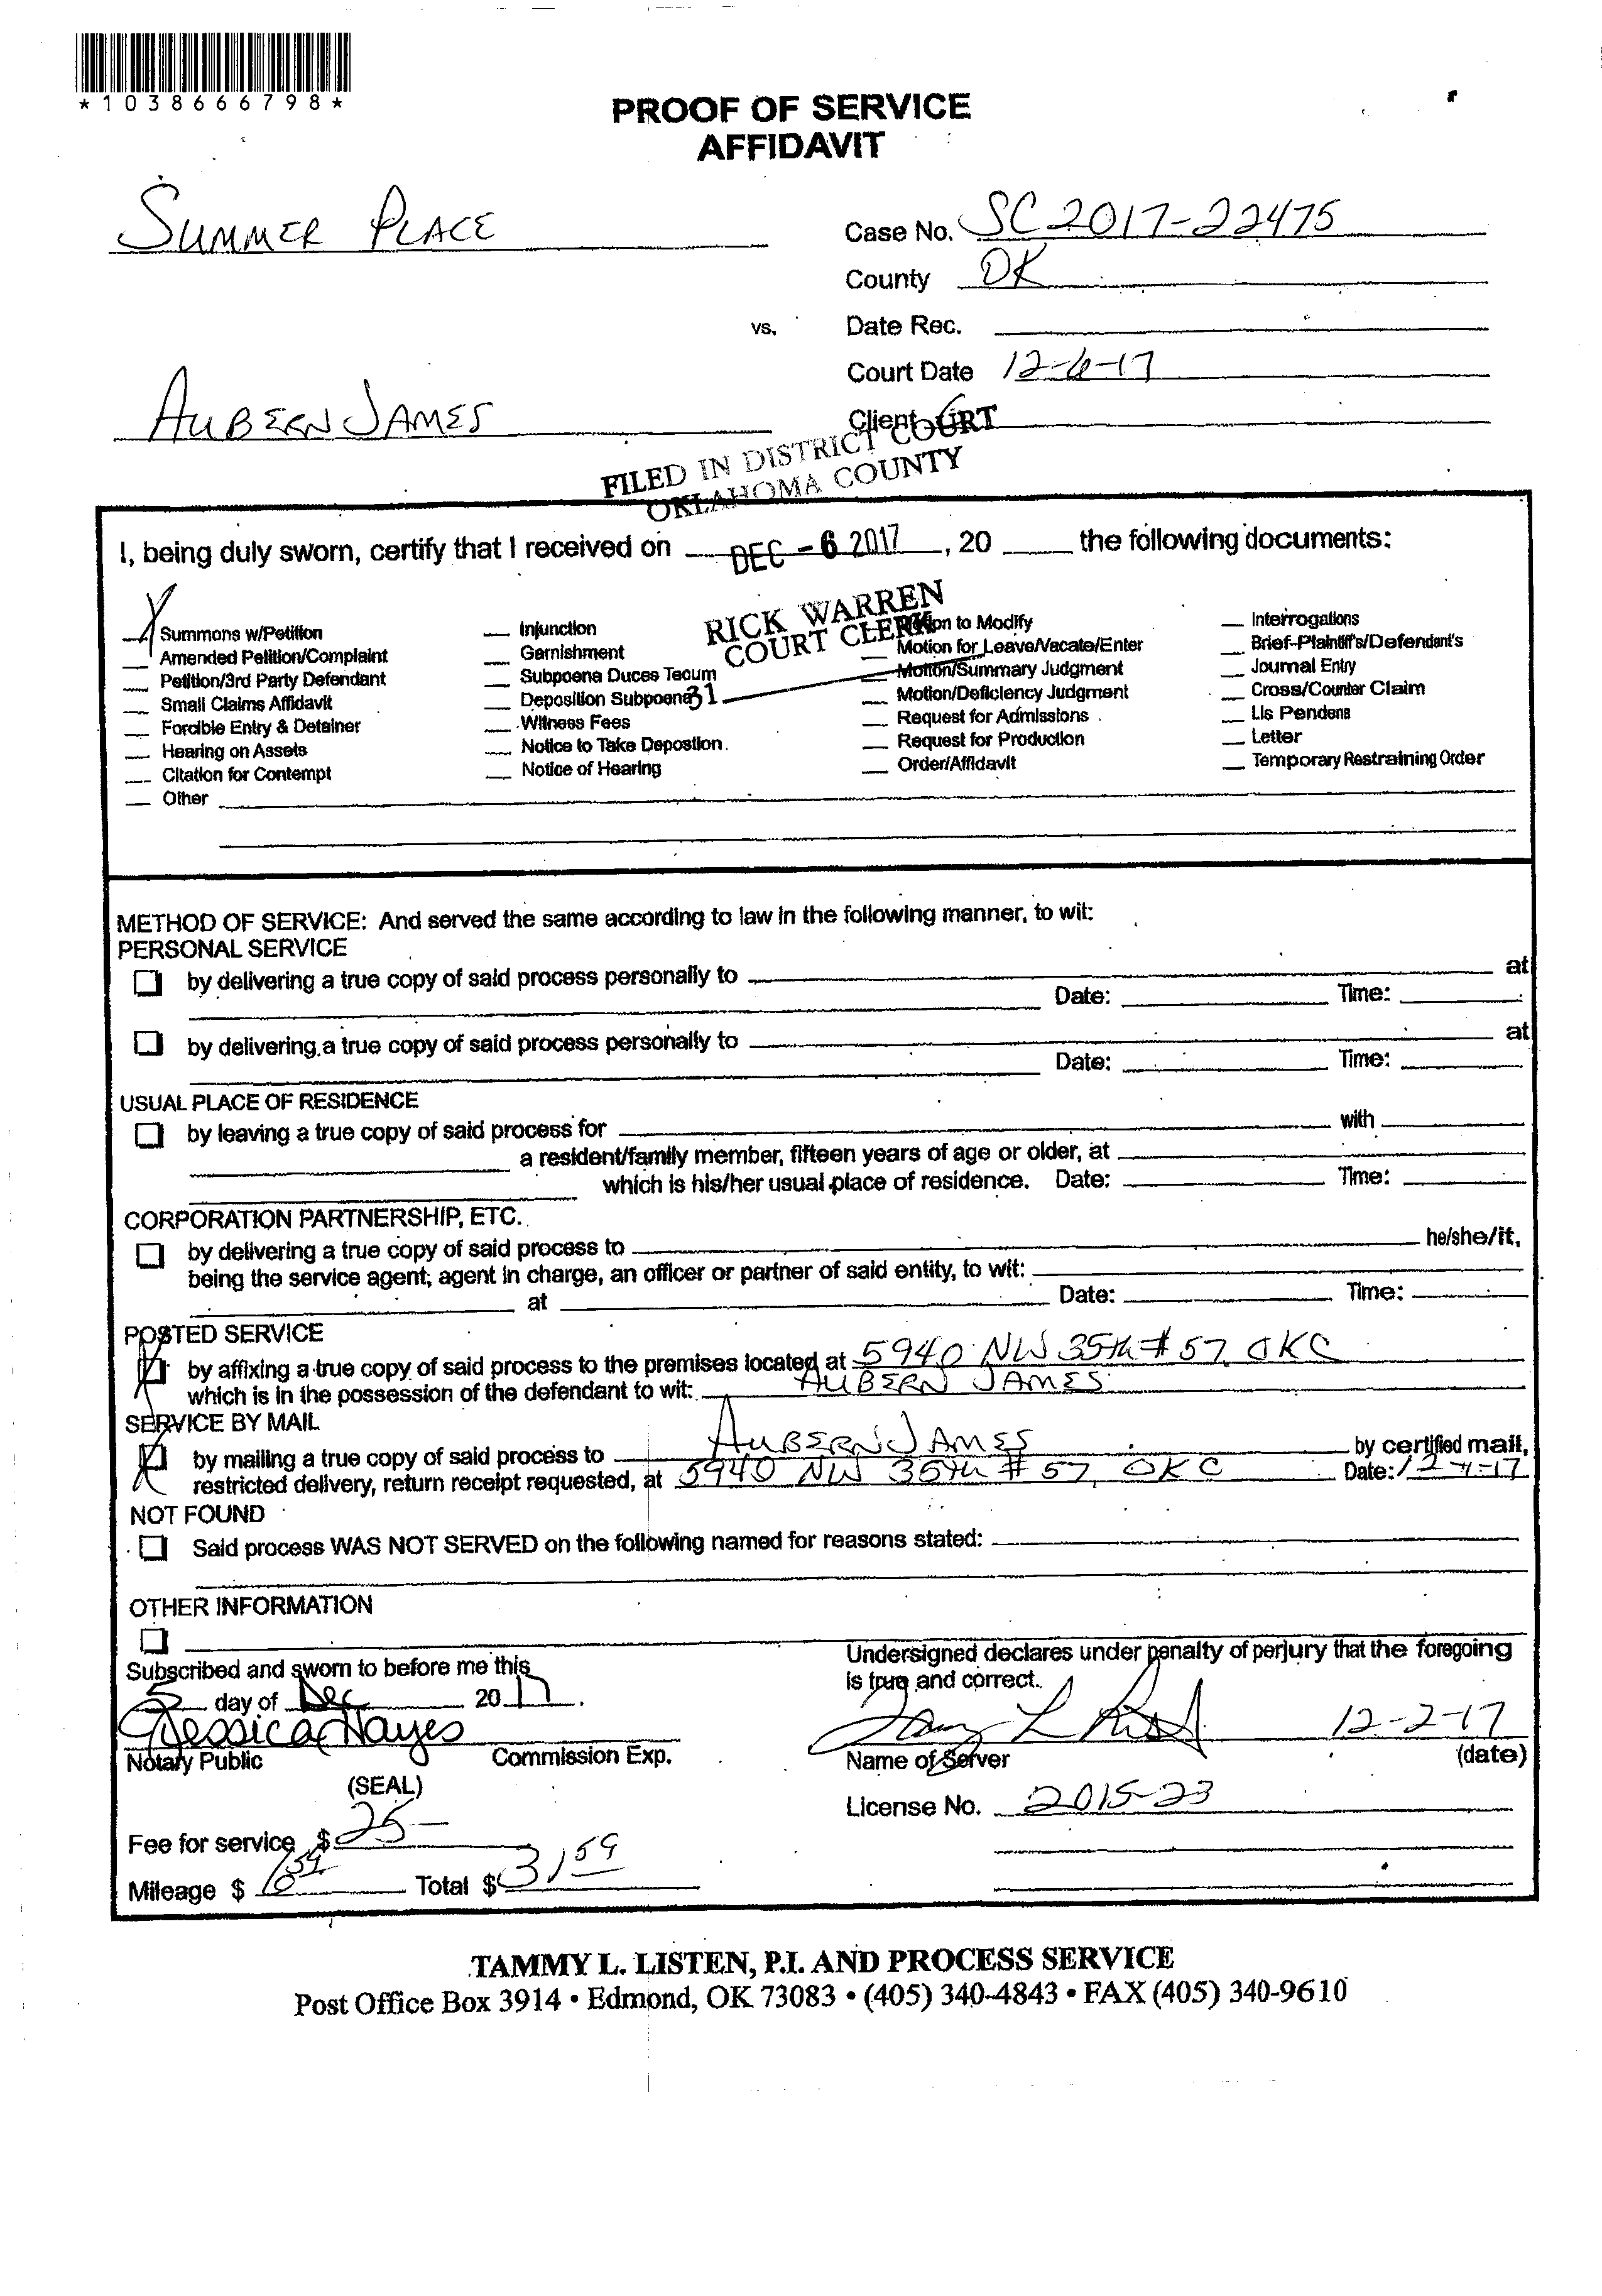 *1038666798*
PROOF OF SERVICE
AFFIDAVIT
SUMMER PLACE
Case No. SC2017-22475
County OK
vs.
Date Rec.
Court Date 12-6-17
AUBERN JAMES
Client
FILED IN DISTRICT COURT
OKLAHOMA COUNTY
I, being duly sworn, certify that I received on DEC - 6 2017, 20 ____ the following documents:
RICK WARREN
COURT CLERK
31
Summons w/Petition
Amended Petition/Complaint
Petition/3rd Party Defendant
Small Claims Affidavit
Forcible Entry & Detainer
Hearing on Assets
Citation for Contempt
Other
Injunction
Garnishment
Subpoena Duces Tecum
Deposition Subpoena
Witness Fees
Notice to Take Depostion
Notice of Hearing
to Modify
Motion for Leave/Vacate/Enter
Motion/Summary Judgment
Motion/Deficiency Judgment
Request for Admissions
Request for Production
Order/Affidavit
Interrogations
Brief-Plaintiff's/Defendant's
Journal Entry
Cross/Counter Claim
Lis Pendens
Letter
Temporary Restraining Order
METHOD OF SERVICE: And served the same according to law in the following manner, to wit:
PERSONAL SERVICE
by delivering a true copy of said process personally to at
Date: Time:
by delivering a true copy of said process personally to at
Date: Time:
USUAL PLACE OF RESIDENCE
by leaving a true copy of said process for with
a resident/family member, fifteen years of age or older, at
which is his/her usual place of residence. Date: Time:
CORPORATION PARTNERSHIP, ETC.
by delivering a true copy of said process to he/she/it,
being the service agent, agent in charge, an officer or partner of said entity, to wit:
at Date: Time:
POSTED SERVICE
by affixing a true copy of said process to the premises located at 5940 NW 35th #57, OKC
which is in the possession of the defendant to wit: AUBERN JAMES
SERVICE BY MAIL
by mailing a true copy of said process to AUBERN JAMES by certified mail,
restricted delivery, return receipt requested, at 5940 NW 35th #57, OKC Date:
NOT FOUND
Said process WAS NOT SERVED on the following named for reasons stated:
OTHER INFORMATION
Undersigned declares under penalty of perjury that the foregoing
is true and correct.
Subscribed and sworn to before me this
5 day of Dec 2017.
Jessica Hayes
Notary Public Commission Exp.
(SEAL)
12-2-17
Name of Server (date)
License No. 2015-23
Fee for service $ 25-
Mileage $ 6 59 Total $ 31 59
TAMMY L. LISTEN, P.I. AND PROCESS SERVICE
Post Office Box 3914 • Edmond, OK 73083 • (405) 340-4843 • FAX (405) 340-9610